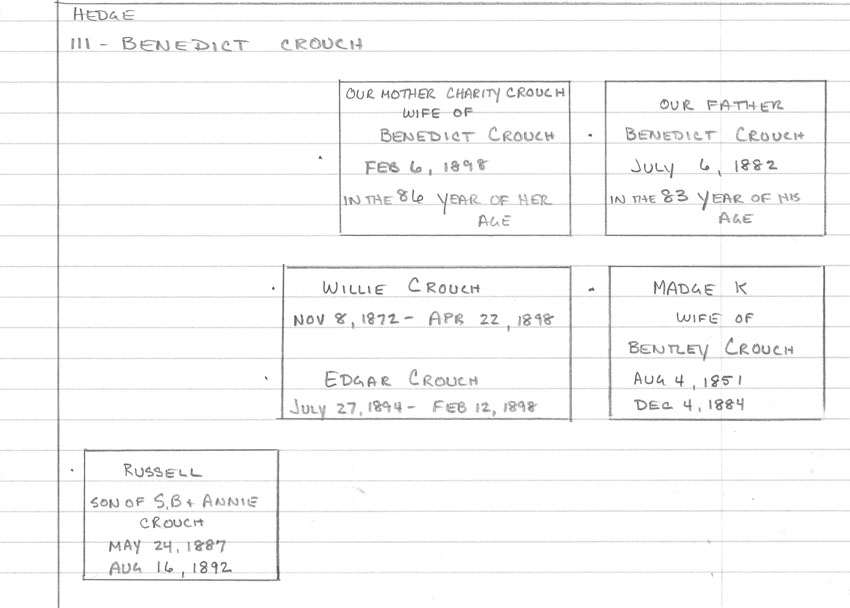 HEDGE
111 - BENEDICT CROUCH
OUR MOTHER CHARITY CROUCH
WIFE OF
BENEDICT CROUCH
FEB 6, 1898
IN THE 86 YEAR OF HER
AGE
OUR FATHER
BENEDICT CROUCH
JULY 6, 1882
IN THE 83 YEAR OF HIS
AGE
WILLIE CROUCH
NOV 8, 1872 - APR 22, 1898
EDGAR CROUCH
JULY 27, 1894 - FEB 12, 1898
MADGE K
WIFE OF
BENTLEY CROUCH
AUG 4, 1851
DEC 4, 1884
RUSSELL
SON OF S,B + ANNIE
CROUCH
MAY 24, 1887
AUG 16, 1892